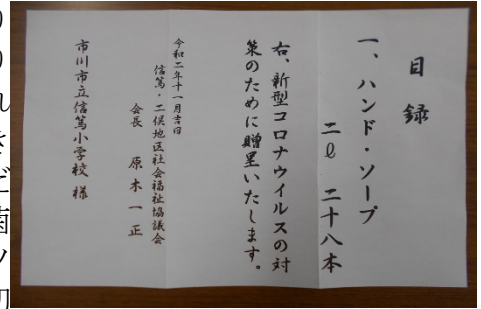 目録
一、ハンド・ソープ
二ℓ 二十八本
右、新型コロナウイルスの対
策のために贈呈いたします。
令和二年十一月吉日
信篤・二俣地区社会福祉協議会
会長 原木一正
市川市立信篤小学校様